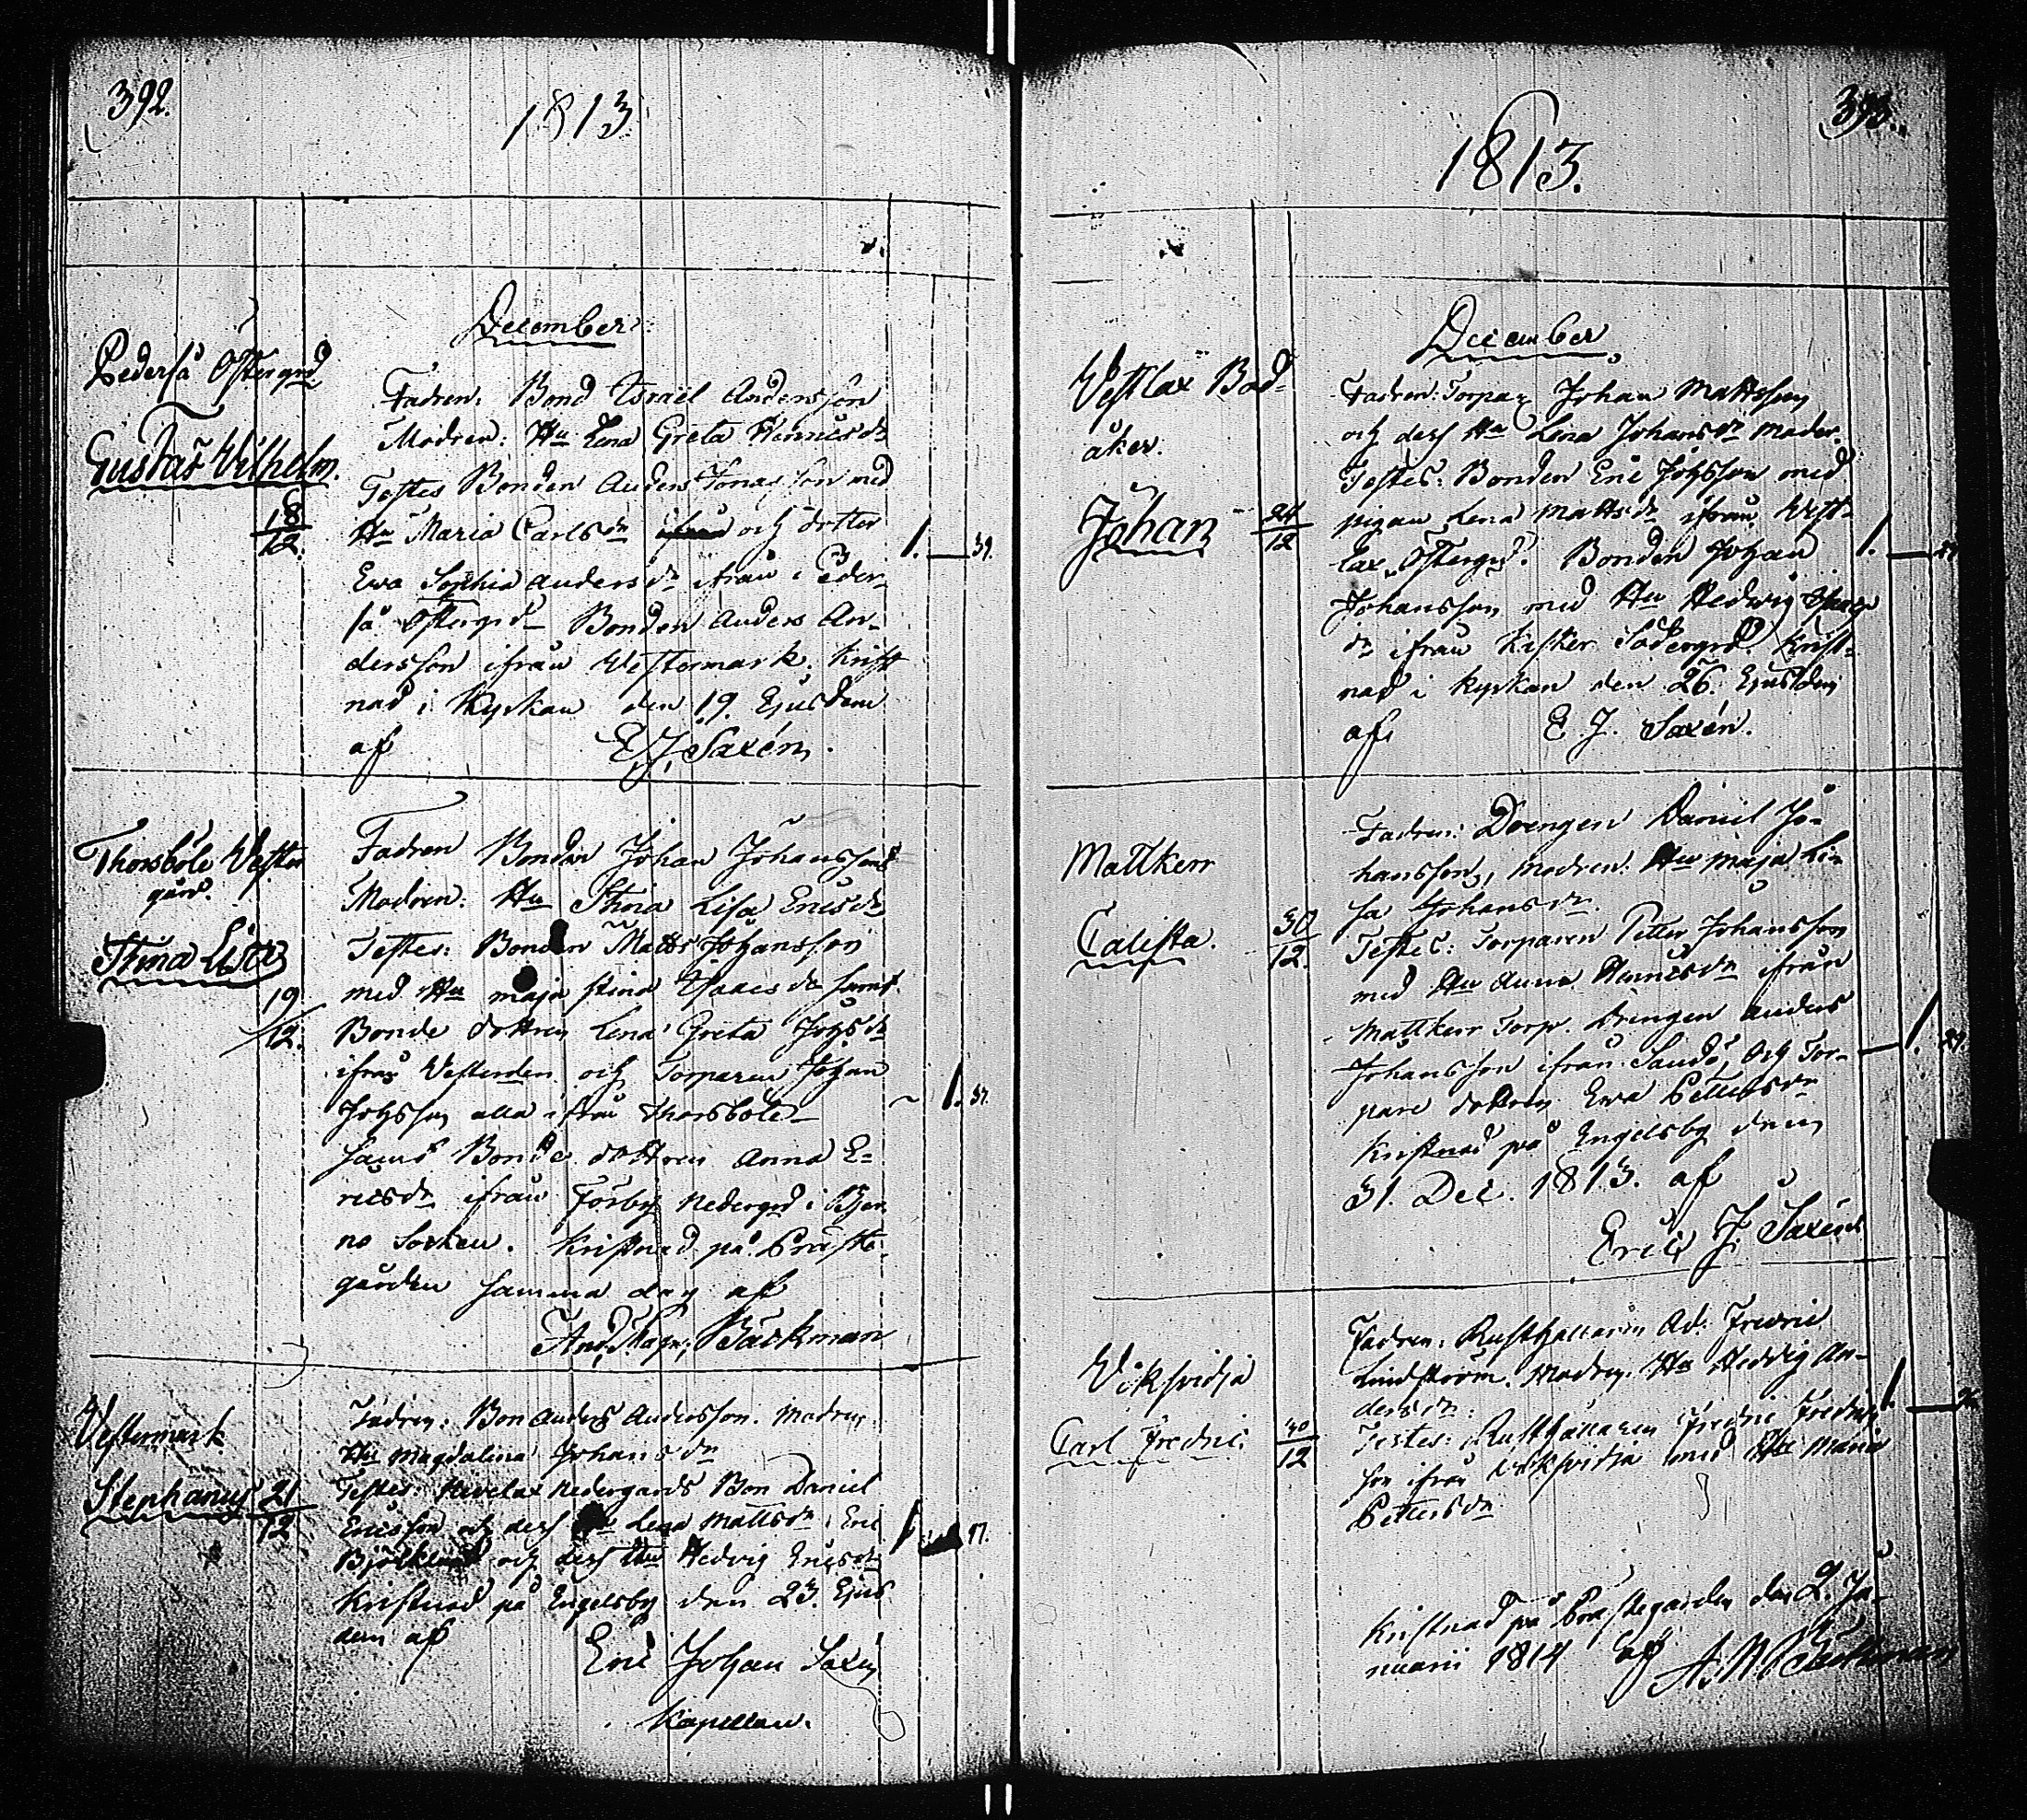 392.
1813
December
Pederså Östergrd
Gustaf Wilhelm.
18
12.
Fadren: Bond Israël Andersson
Modren: Hu Lena Greta Hennicsdr
Testes Bonden Anders Jonasson med
Hu Maria Carlsdr och dotter
Ewa Sophia Andersdr ifrån Peder-
så Östergrd Bonden Anders An-
dersson ifrån Westermark. Krist
nad i Kyrkan den 19. Ejusdem
af E. J. Saxén.
1. 39.
Thorsböle Wester
gård.
Stina Lisa
19
12.
Fadren Bonden Johan Johansson
Modren: Hu Stina Lisa Ericsdr
Testes: Bonden Matts Johansson
med Hu Maja Stina Isaacsdr samt
Bonde dottren Lena Greta Johsdr
ifrån Vesterden och Torparen Johan
Johsson alla ifrån Thorsböle
samt Bonde dottren Anna E-
ricsdr ifrån Förby Nedergrd i Bjer
no Socken. Kristnad på Präste-
gården samma dag af
And. Magn. Bäckman
1. 37.
Vestermark
Stephanus 21
12
Fadren: Bon Anders Andersson. Modren:
Hu Magdalena Johansdr
Testes: Nivelax Nedergårds Bon Daniel
Ericsson och dess Hu Lena Mattsdr, Eric
Björklund och dess Hu Hedvig Ericsdr
Kristnad på Engelsby den 23. Ejus
dem af
Eric Johan Saxén
Kapellan.
1
393.
1813.
December
Vestlax Bad-
åker.
Johan
24
12
Fadren: Torpar Johan Mattsson
och dess Hu Lena Johansdr Moder.
Testes: Bonden Eric Johsson med
pigan Lena Mattsdr ifrån West-
lax Östergrd. Bonden Johan
Johansson med Hu Hedwig
dr ifrån Kisker Södergrd. Krist-
nad i Kyrkan den 26. Ejusdem
af E. J. Saxén.
1.
Mattkerr
Calista.
30
12.
Fadren: Drengen Daniel Jo-
hansson, Modren: Hu Maja Li-
sa Johansdr.
Testes: Torparen Petter Johansson
med Hu Anna Hennicsdr ifrån
Mattkerr Torp. Drengen Anders
Johansson ifrån Sandö, och Tor-
pare dottren Ewa Pettersdr
Kristnad på Engelsby den
31. Dec. 1813. af
Eric J. Saxén
1.
Viksvidja
Carl Fredric.
30
12
Fadren: Rusthållaren Ad: Fredric
Lindström. Modren. Hu Hedvig An-
dersdr.
Testes: Rusthållaren Fredric Fredrics
son ifrån Viksvidja med Hu Maria
Pettersdr
Kristnad på Prästegården den 2. Ja-
nuarii 1814 af A. M. Bäckman
1.